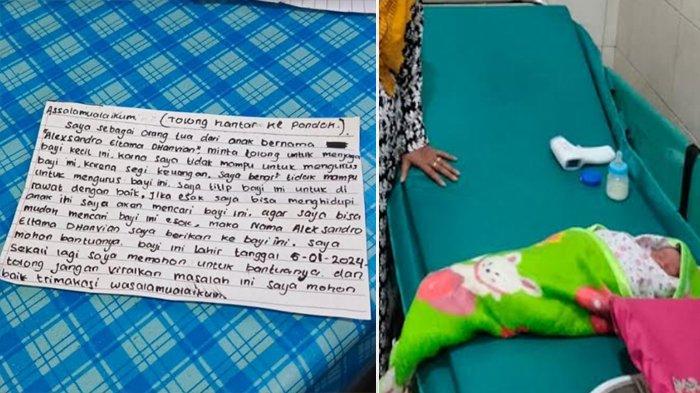 Assalamualaikum (Tolong hantar ke Pondok.)
Saya sebagai orang tua dari anak bernama
"Alexsandro Eltama DHanvian". minta tolong untuk menjaga
bayi kecil ini. karna saya tidak mampu untuk mengurus
bayi ini, karena segi keuangan. Saya berat tidak mampu
untuk mengurus bayi ini. Saya titip bayi ini untuk di
rawat dengan baik. Jika esok saya bisa menghidupi
anak ini saya akan mencari bayi ini. agar saya bisa
mudah mencari bayi ini esok, maka Nama Alexsandro
Eltama DHanvian saya berikan ke bayi ini. saya
mohon bantuanya. bayi ini lahir tanggal 5-01-2024
Sekali lagi saya memohon untuk bantuanya. dan
tolong jangan viralkan masalah ini saya mohon
baik trimakasi wasalamualaikum.